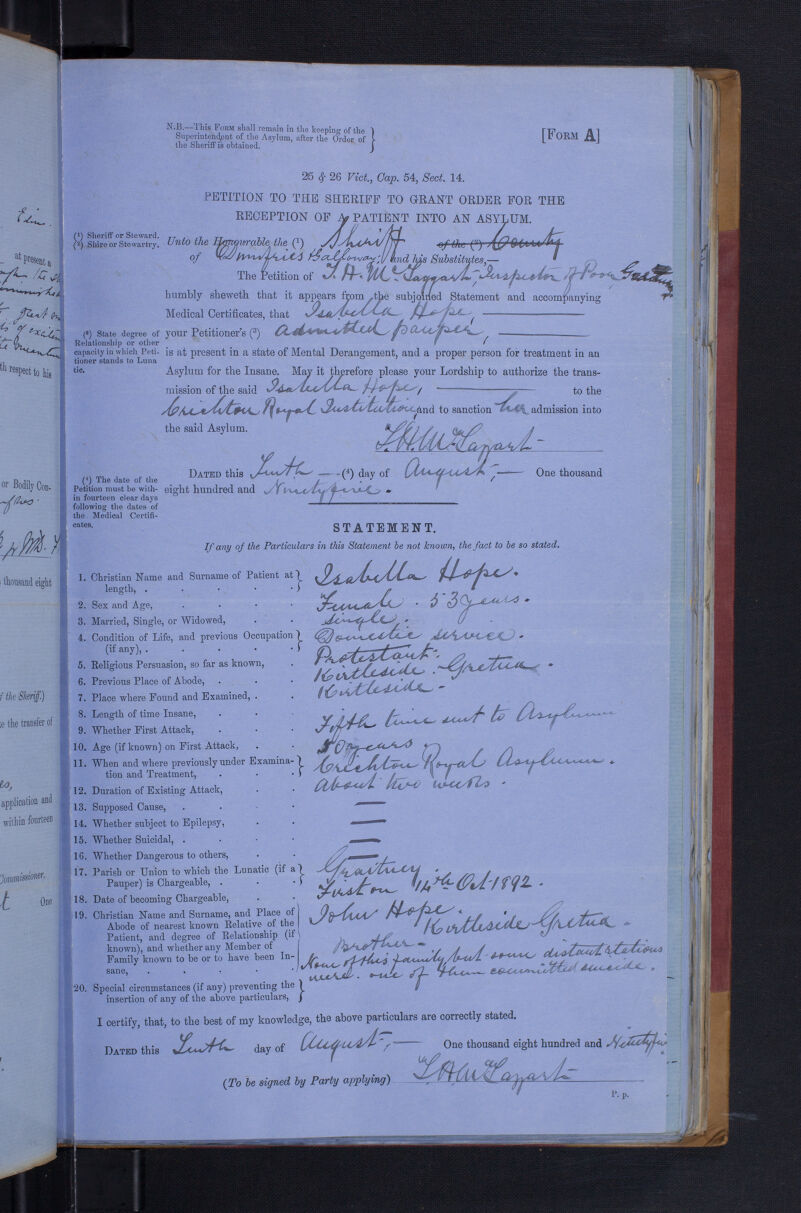 N.B.—This Form shall remain in the keeping of the
Superintendent of the Asylum, after the Order of
the Sheriff is obtained.
[Form A]
25 & 26 Vict., Cap. 54, Sect. 14.
PETITION TO THE SHERIFF TO GRANT ORDER FOR THE
RECEPTION OF A PATIENT INTO AN ASYLUM.
(1) Sheriff or Steward.
(2) Shire or Stewartry.
Unto the Honourable the (1) Sheriff of the (2) County
of Dumfries & Galloway, and his Substitutes,—
The Petition of T. H. McTaggart, Inspector of Poor,
humbly sheweth that it appears from the subjoined Statement and accompanying
Medical Certificates, that Isabella Hope,
(3) State degree of
Relationship or other
capacity in which Peti-
tioner stands to Luna
tic.
your Petitioner's (3) admitted pauper,
is at present in a state of Mental Derangement, and a proper person for treatment in an
Asylum for the Insane. May it therefore please your Lordship to authorize the trans-
mission of the said Isabella Hope, to the
Crichton Royal Institution and to sanction her admission into
the said Asylum.
T. H. McTaggart
(4) The date of the
Petition must be with-
in fourteen clear days
following the dates of
the Medical Certifi-
cates.
Dated this Tenth (4) day of August, One thousand
eight hundred and Ninety five.
STATEMENT.
If any of the Particulars in this Statement be not known, the fact to be so stated.
1. Christian Name and Surname of Patient at
length, . Isabella Hope.
2. Sex and Age, Female . 53 years.
3. Married, Single, or Widowed, Single.
4. Condition of Life, and previous Occupation
(if any), . Domestic service.
5. Religious Persuasion, so far as known, Protestant.
6. Previous Place of Abode, . Kirtleside. Gretna.
7. Place where Found and Examined, . Kirtleside.
8. Length of time Insane,
9. Whether First Attack, Fifth time sent to Asylum
10. Age (if known) on First Attack, years.
11. When and where previously under Examina-
tion and Treatment, Crichton Royal Asylum.
12. Duration of Existing Attack, About two weeks.
13. Supposed Cause, . —
14. Whether subject to Epilepsy, —
15. Whether Suicidal, . —
16. Whether Dangerous to others, —
17. Parish or Union to which the Lunatic (if a
Pauper) is Chargeable, . Graitney.
18. Date of becoming Chargeable, First on 14th Oct 1892.
19. Christian Name and Surname, and Place of
Abode of nearest known Relative of the
Patient, and degree of Relationship (if
known), and whether any Member of
Family known to be or to have been In-
sane, .
John Hope.
Kirtleside Gretna.
Brother.
None of this family, but some distant relations
were. one of them committed suicide.
20. Special circumstances (if any) preventing the
insertion of any of the above particulars,
I certify, that, to the best of my knowledge, the above particulars are correctly stated.
Dated this Tenth day of August, One thousand eight hundred and Ninety five
(To be signed by Party applying) T. H. McTaggart
P. p.
at present a
th respect to his
or Bodily Con-
thousand eight
f the Sheriff.)
e the transfer of
application and
within fourteen
Commissioner.
One